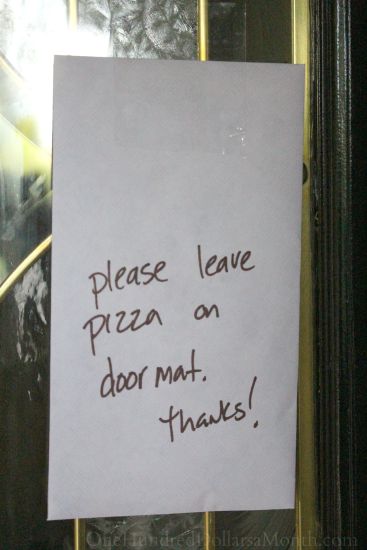 please leave
pizza on
door mat.
thanks!
OneHundredDollarsaMonth.com